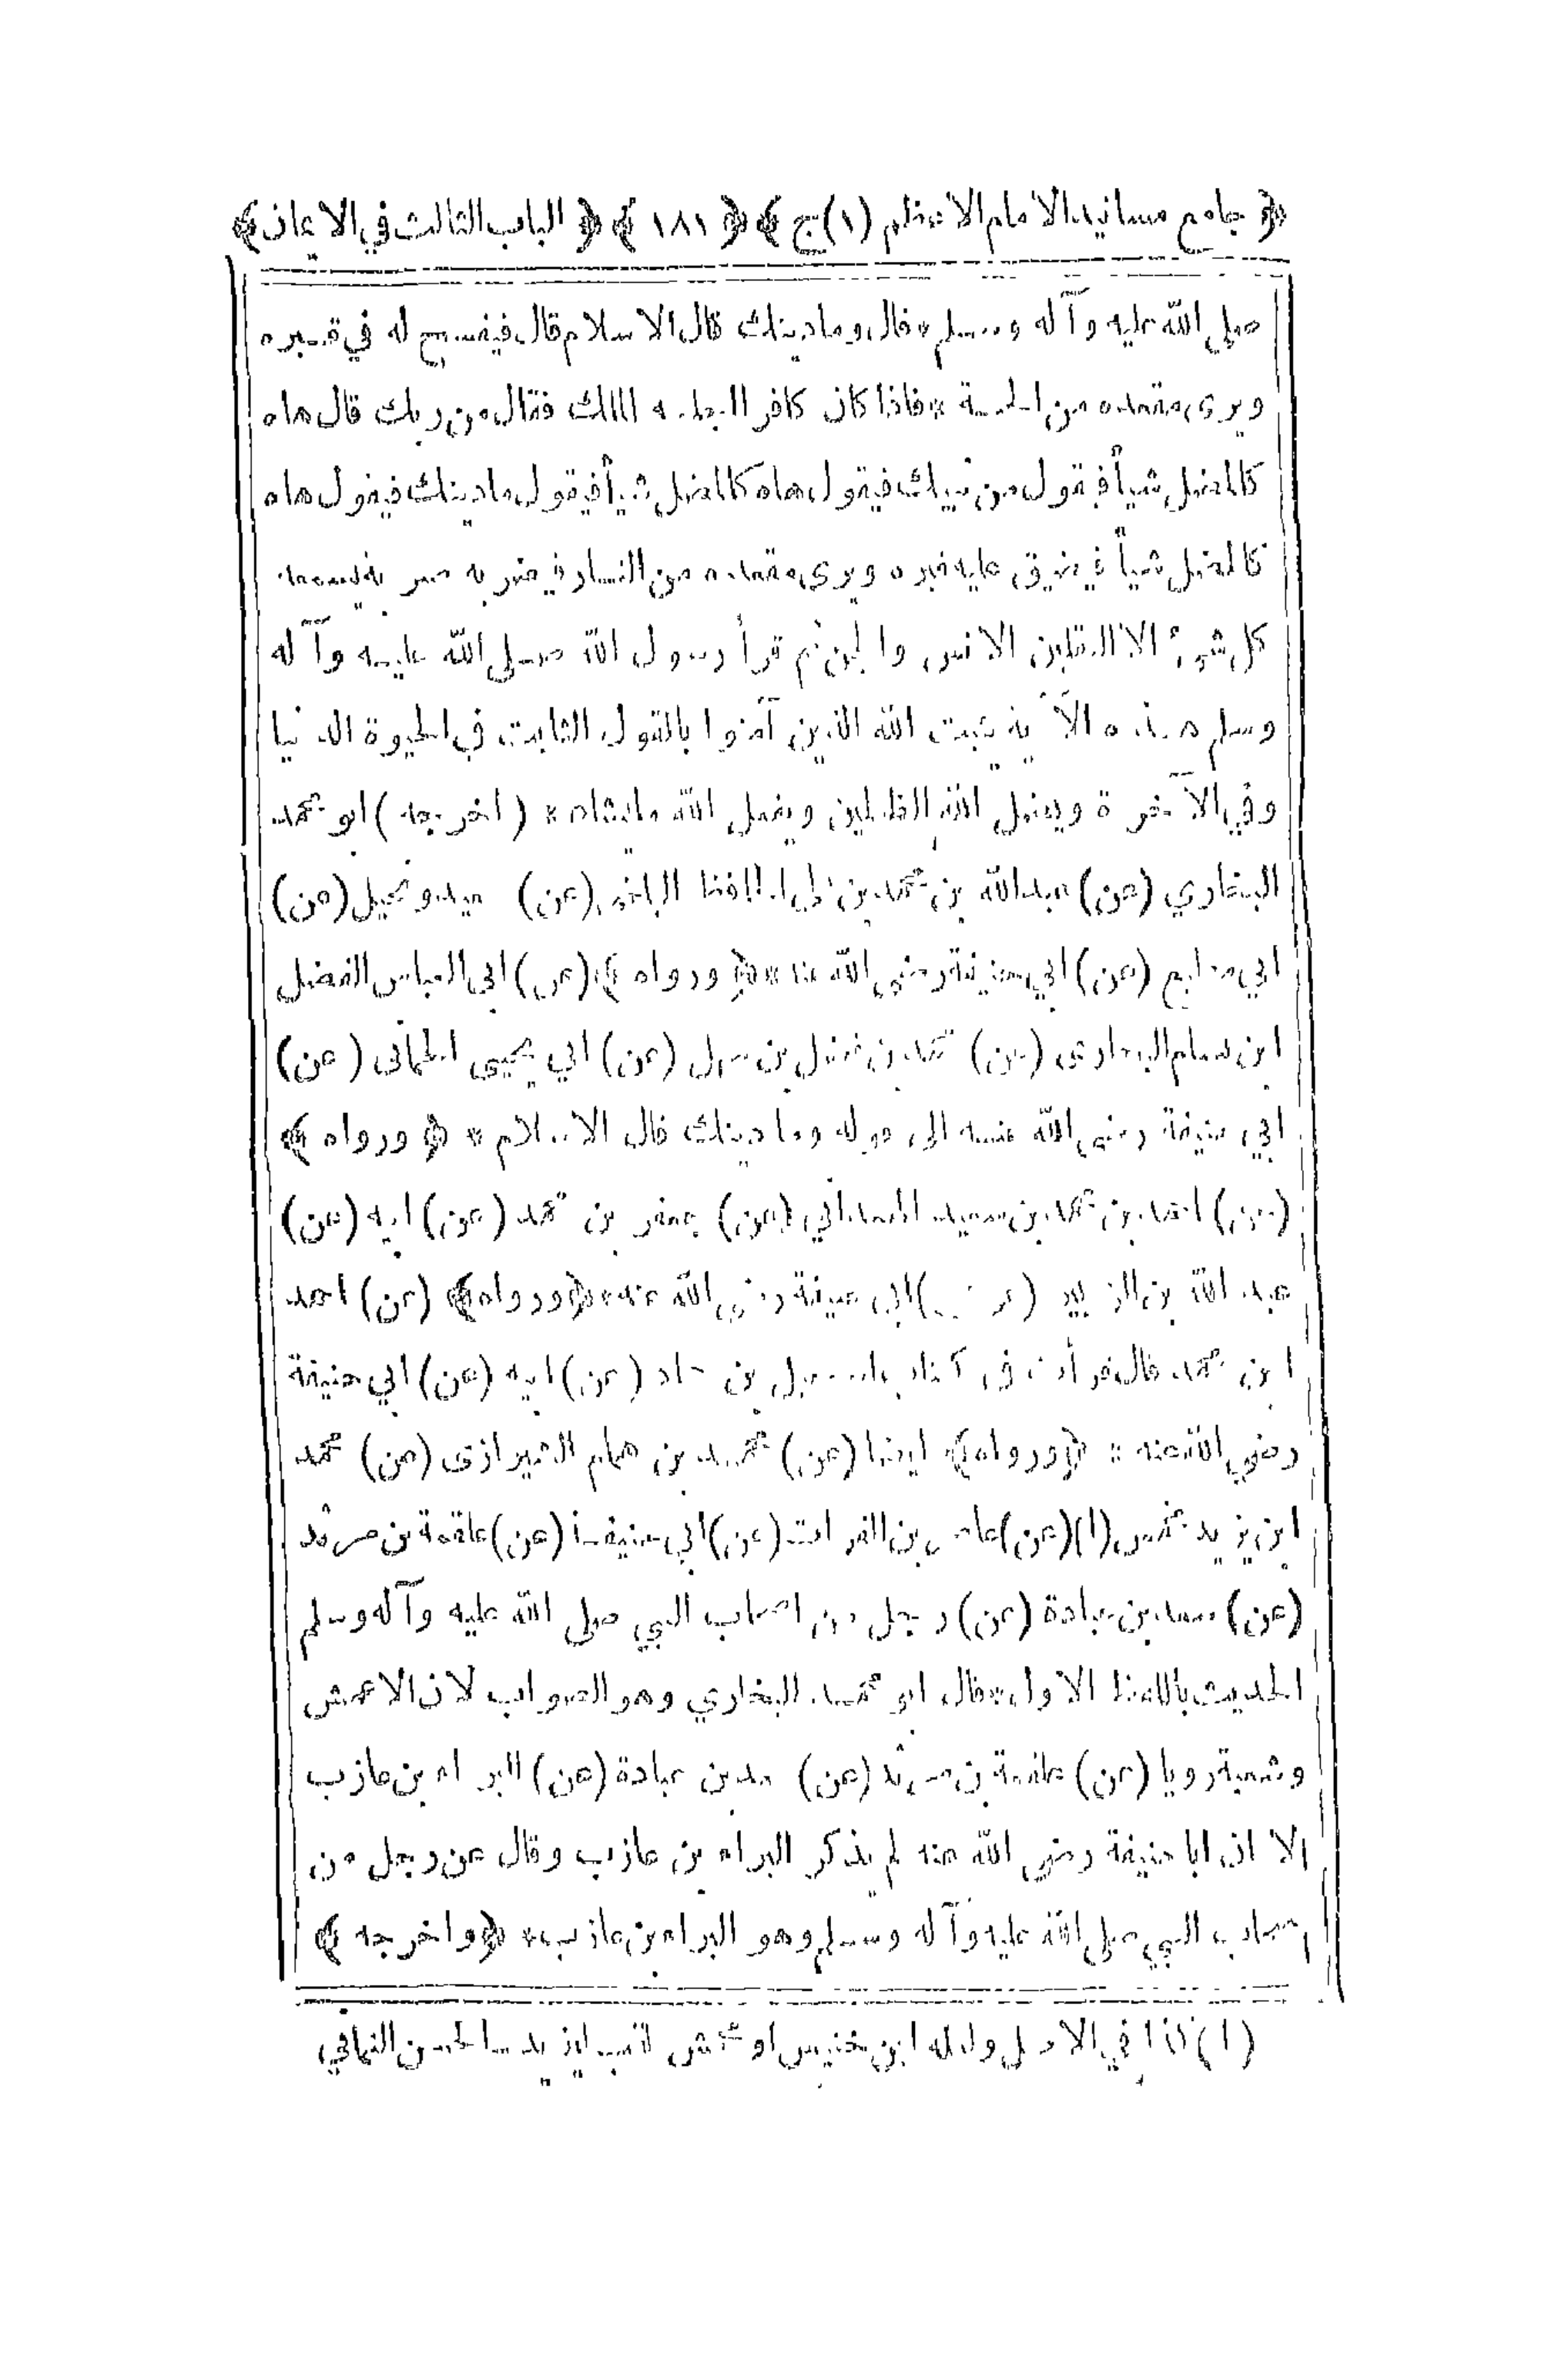 ﴿ جامع مسانيد الامام الاعظم (١) ج ﴾ ﴿ ١٨١ ﴾ ﴿ الباب الثالث في الايمان ﴾
صلى الله عليه وآله وسلم * قال وما دينك قال الاسلام قال فيفسح له في قبره
ويرى مقعده من الجنة * فاذا كان كافرا اجلسه الملك فقال من ربك قال هاه
كالمضل شيأ فيقول من نبيك فيقول هاه كالمضل شيأ فيقول ما دينك فيقول هاه
كالمضل شيأ فيضيق عليه قبره ويرى مقعده من النار فيضربه ضربة يسمعه
كل شيء الا الثقلين الانس والجن ثم قرأ رسول الله صلى الله عليه وآله
وسلم هذه الآية يثبت الله الذين آمنوا بالقول الثابت في الحيوة الدنيا
وفي الآخرة ويضل الله الظالمين ويفعل الله ما يشاء * (اخرجه) ابو محمد
البخاري (عن) عبد الله بن محمد بن علي الحافظ البلخي (عن) (عن)
ابي (عن) ابي حنيفة رضي الله عنه * ﴿ ورواه ﴾ (عن) ابي العباس الفضل
ابن بسام البخارى (عن) محمد بن (عن) ابي يحيى الحمانى (عن)
ابي حنيفة رضي الله عنه الى قوله وما دينك قال الاسلام * ﴿ ورواه ﴾
(عن) احمد بن محمد بن سعيد الهمداني (عن) جعفر بن محمد (عن) ابيه (عن)
عبد الله بن الزبير (عن) ابى حنيفة رضي الله عنه * ﴿ ورواه ﴾ (عن) احمد
ابن محمد قال قرأت في كتاب اسمعيل بن حماد (عن) ابيه (عن) ابي حنيفة
رضي الله عنه * ﴿ ورواه ﴾ ايضا (عن) محمد بن همام الشيرازى (عن) محمد
ابن يزيد (١) (عن) بن الفرات (عن) ابي حنيفة (عن) علقمة بن مرثد
(عن) سعد بن عبادة (عن) رجل من اصحاب النبي صلى الله عليه وآله وسلم
الحديث باللفظ الاول * قال ابو محمد البخاري وهو الصواب لان الاعمش
وشعبة رويا (عن) علقمة بن مرثد (عن) سعد بن عبادة (عن) البراء بن عازب
الا ان ابا حنيفة رضي الله عنه لم يذكر البراء بن عازب وقال عن رجل من
اصحاب النبي صلى الله عليه وآله وسلم وهو البراء بن عازب * ﴿ واخرجه ﴾
(١) كذا في الاصل ولعله ابن خنيس او لقب